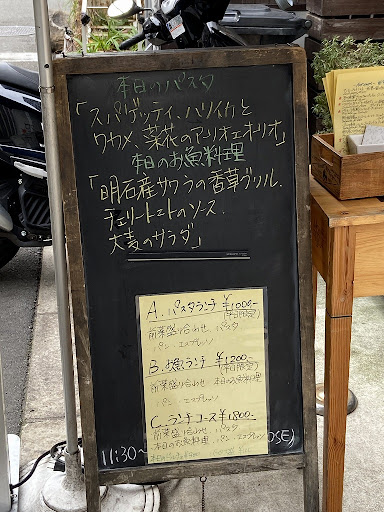 本日のパスタ
「スパゲッティ、ハリイカと
ワカメ、菜花のアーリオエオーリオ」
本日のお魚料理
「明石産サワラの香草グリル.
チェリートマトのソース.
大麦のサラダ」
A. パスタランチ ¥1000-
(平日限定)
前菜盛り合わせ パスタ
パン. エスプレッソ
B. お魚ランチ ¥1200-
(平日限定)
前菜盛り合わせ 本日のお魚料理
パン.
C. ランチコース ¥1800-
前菜盛り合わせ パスタ
本日のお魚料理 パン. エスプレッソ
11:30~
OSE)